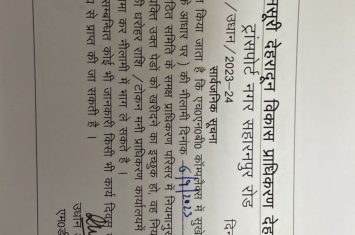 मसूरी देहरादून विकास प्राधिकरण
ट्रांसपोर्ट नगर सहारनपुर रोड
/ उद्यान / 2023–24
सार्वजनिक सूचना
किया जाता है कि एच0एन0बी0 कॉम्प्लेक्स में
के आधार पर ) की नीलामी दिनांक 6/9/2023
गठित समिति के समक्ष प्राधिकरण परिसर में
उक्त पेडों को खरीदने का इच्छुक हो, वह
धरोहर राशि / टोकन मनी प्राधिकरण कार्यालय में
जमा कर नीलामी में भाग ले सकते है ।
सम्बन्धित कोई भी जानकारी किसी भी कार्य दिवस
से प्राप्त की जा सकती है ।
उद्यान